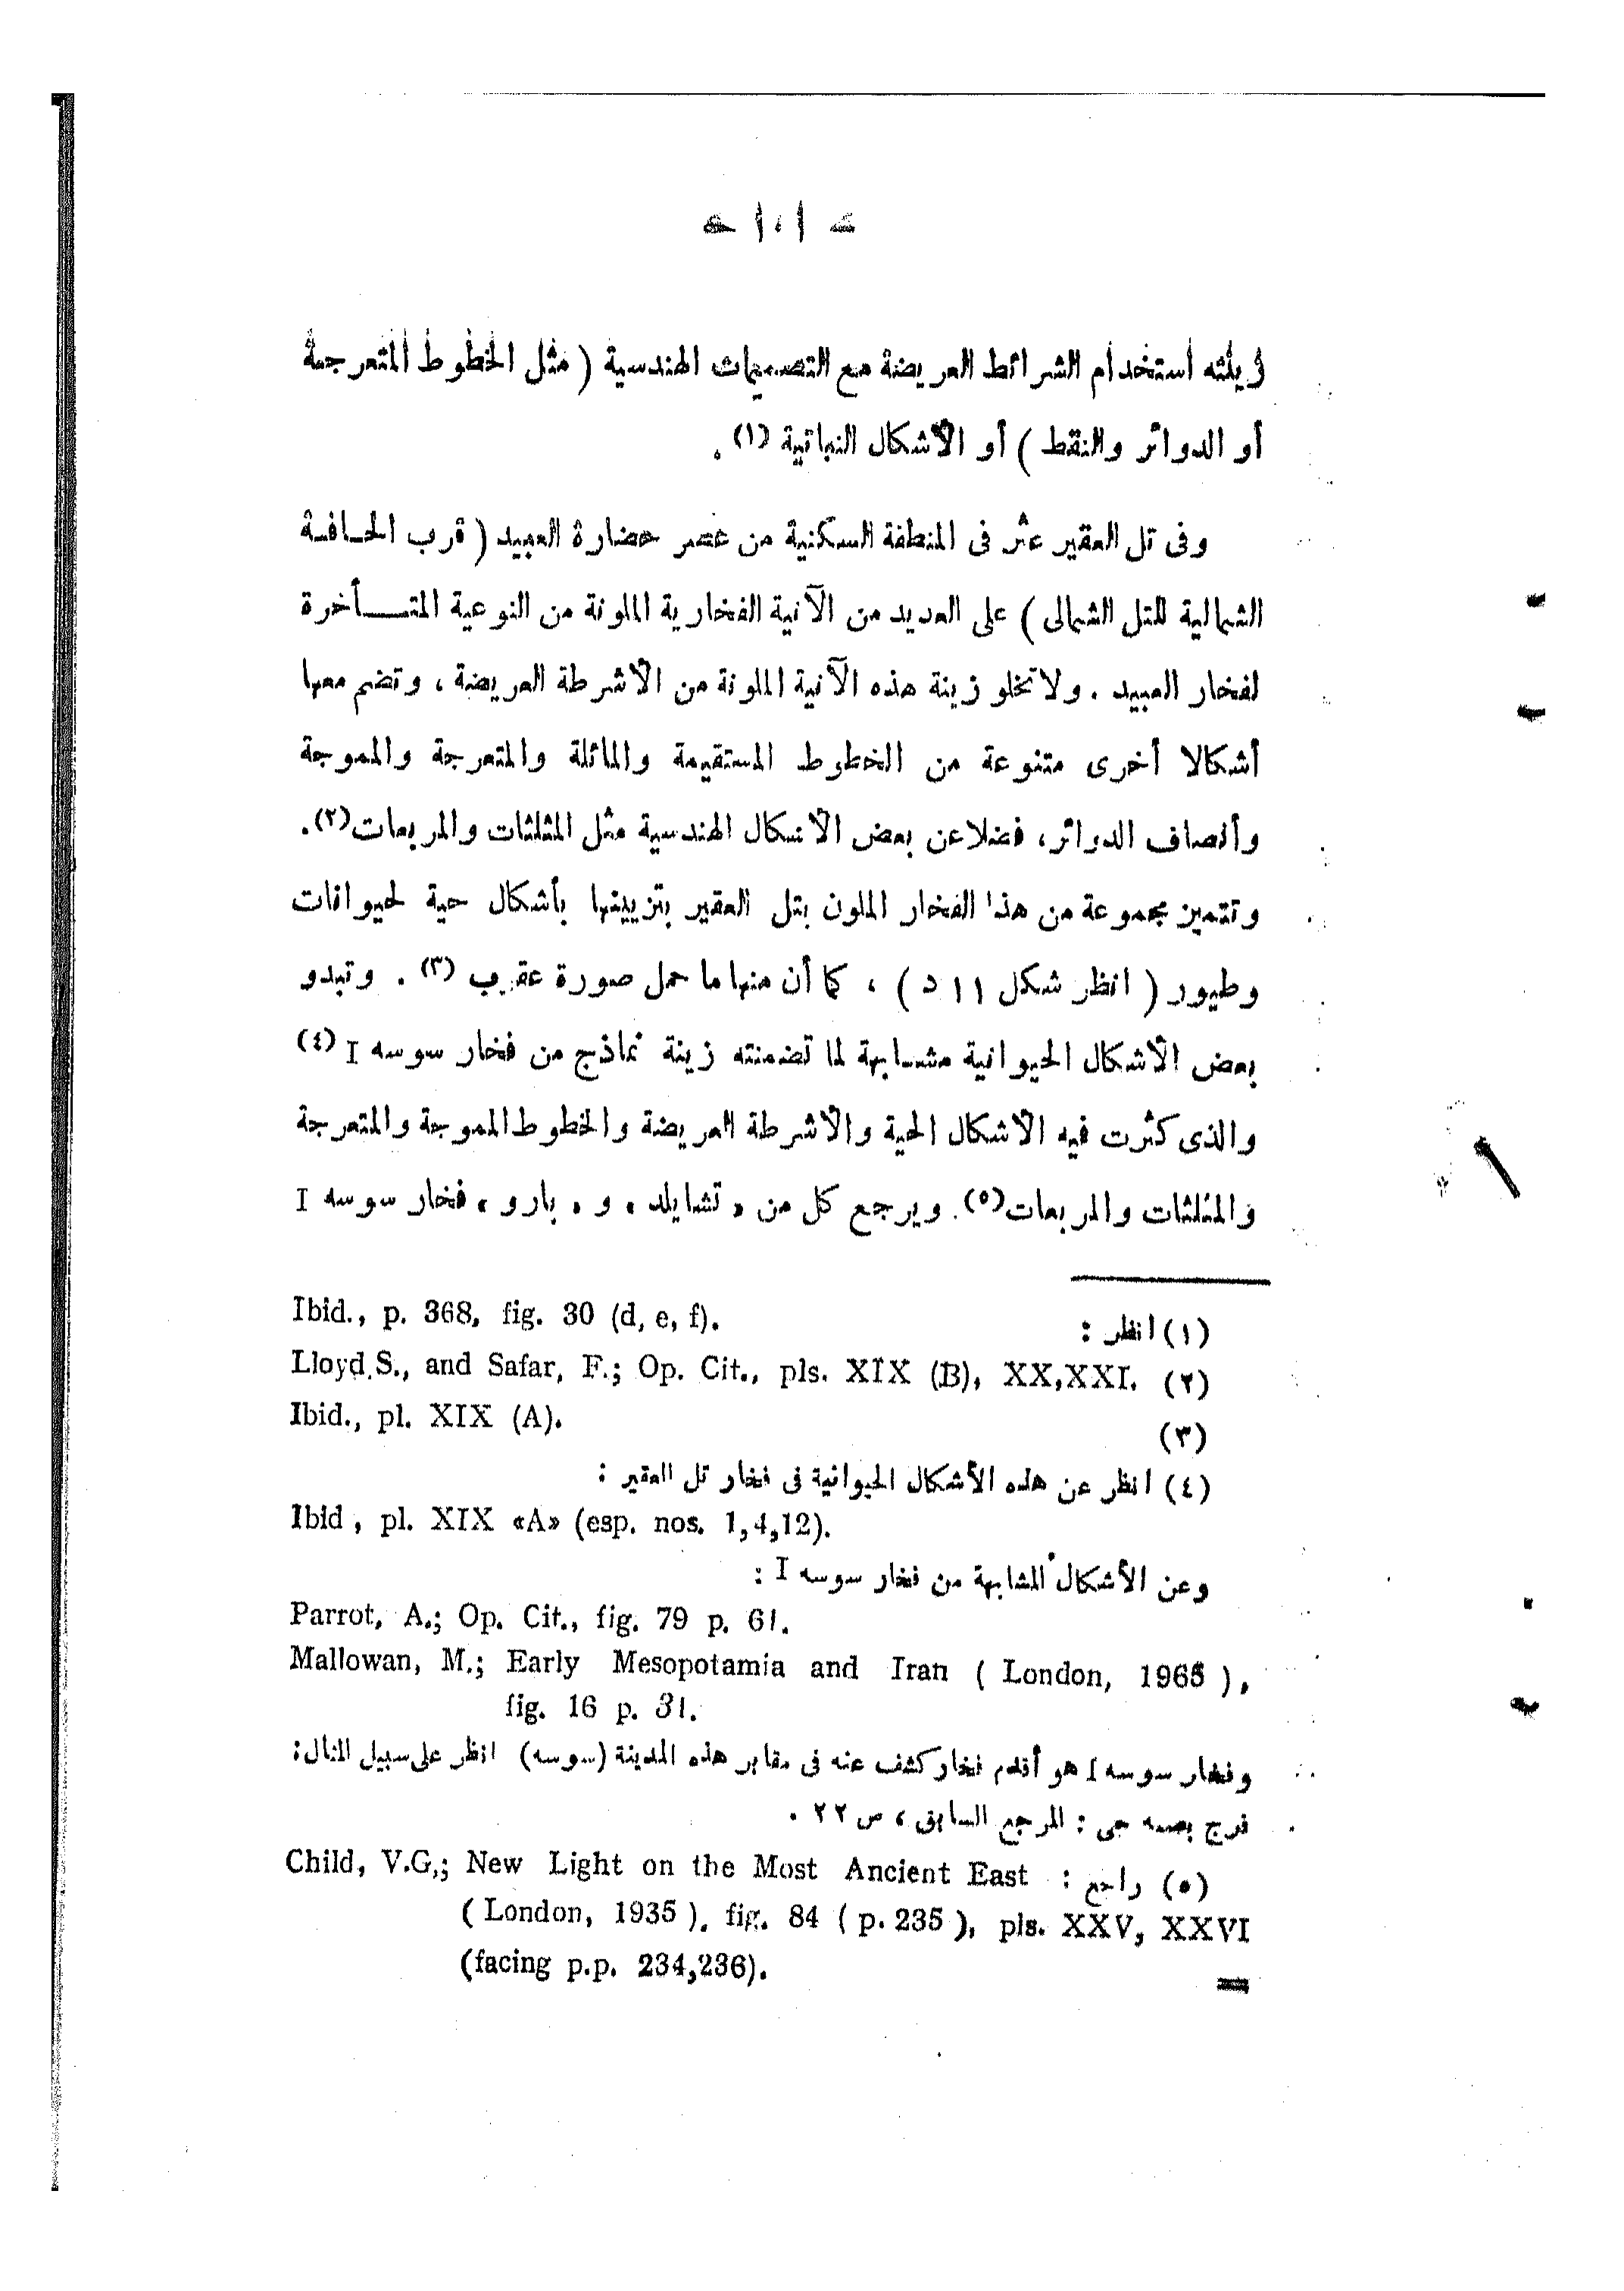 — ١٠١ —
زينته استخدام الشرائط العريضة مع التصميمات الهندسية ( مثل الخطوط المتعرجة
أو الدوائر والنقط ) أو الأشكال النباتية (١) .
وفى تل العقير عثر فى المنطقة السكنية من عصر حضارة العبيد ( قرب الحافة
الشمالية للتل الشمالى ) على العديد من الآنية الفخارية الملونة من النوعية المتــأخرة
لفخار العبيد . ولا تخلو زينة هذه الآنية الملونة من الأشرطة العريضة ، وتضم معها
أشكالا أخرى متنوعة من الخطوط المستقيمة والمائلة والمتعرجة والمموجة
وأنصاف الدوائر ، فضلا عن بعض الأشكال الهندسية مثل المثلثات والمربعات (٢) .
وتتميز مجموعة من هذا الفخار الملون بتل العقير بتزيينها بأشكال حية لحيوانات
وطيور ( انظر شكل ١١ د ) ، كما أن منها ما حمل صورة عقرب (٣) . وتبدو
بعض الأشكال الحيوانية مشابهة لما تضمنته زينة نماذج من فخار سوسه I (٤)
والذى كثرت فيه الأشكال الحية والأشرطة العريضة والخطوط المموجة والمتعرجة
والمثلثات والمربعات (٥) . ويرجع كل من « تشايلد » و « بارو » فخار سوسه I
(١) انظر : Ibid., p. 368, fig. 30 (d, e, f).
(٢) Lloyd,S., and Safar, F.; Op. Cit., pls. XIX (B), XX,XXI.
(٣) Ibid., pl. XIX (A).
(٤) انظر عن هذه الأشكال الحيوانية فى فخار تل العقير :
Ibid , pl. XIX «A» (esp. nos. 1,4,12).
وعن الأشكال المشابهة من فخار سوسه I :
Parrot, A.; Op. Cit., fig. 79 p. 61.
Mallowan, M.; Early Mesopotamia and Iran ( London, 1965 ),
fig. 16 p. 31.
وفخار سوسه I هو أقدم فخار كشف عنه فى مقابر هذه المدينة (سوسه) انظر على سبيل المثال :
فرج بصمه جى : المرجع السابق ، ص ٢٢ .
(٥) راجع : Child, V.G,; New Light on the Most Ancient East
( London, 1935 ), fig. 84 ( p. 235 ), pls. XXV, XXVI
(facing p.p. 234,236).
=